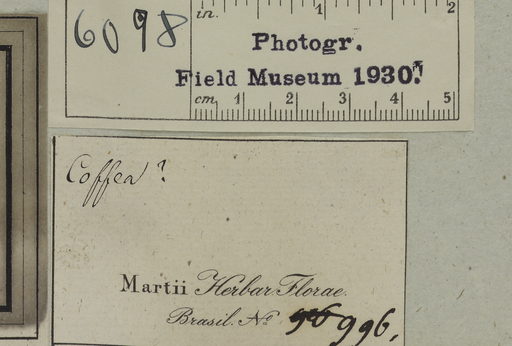 6098
in. 1 2
Photogr.
Field Museum 1930.
cm 1 2 3 4 5
Coffea?
Martii Herbar. Florae.
Brasil. No 996.